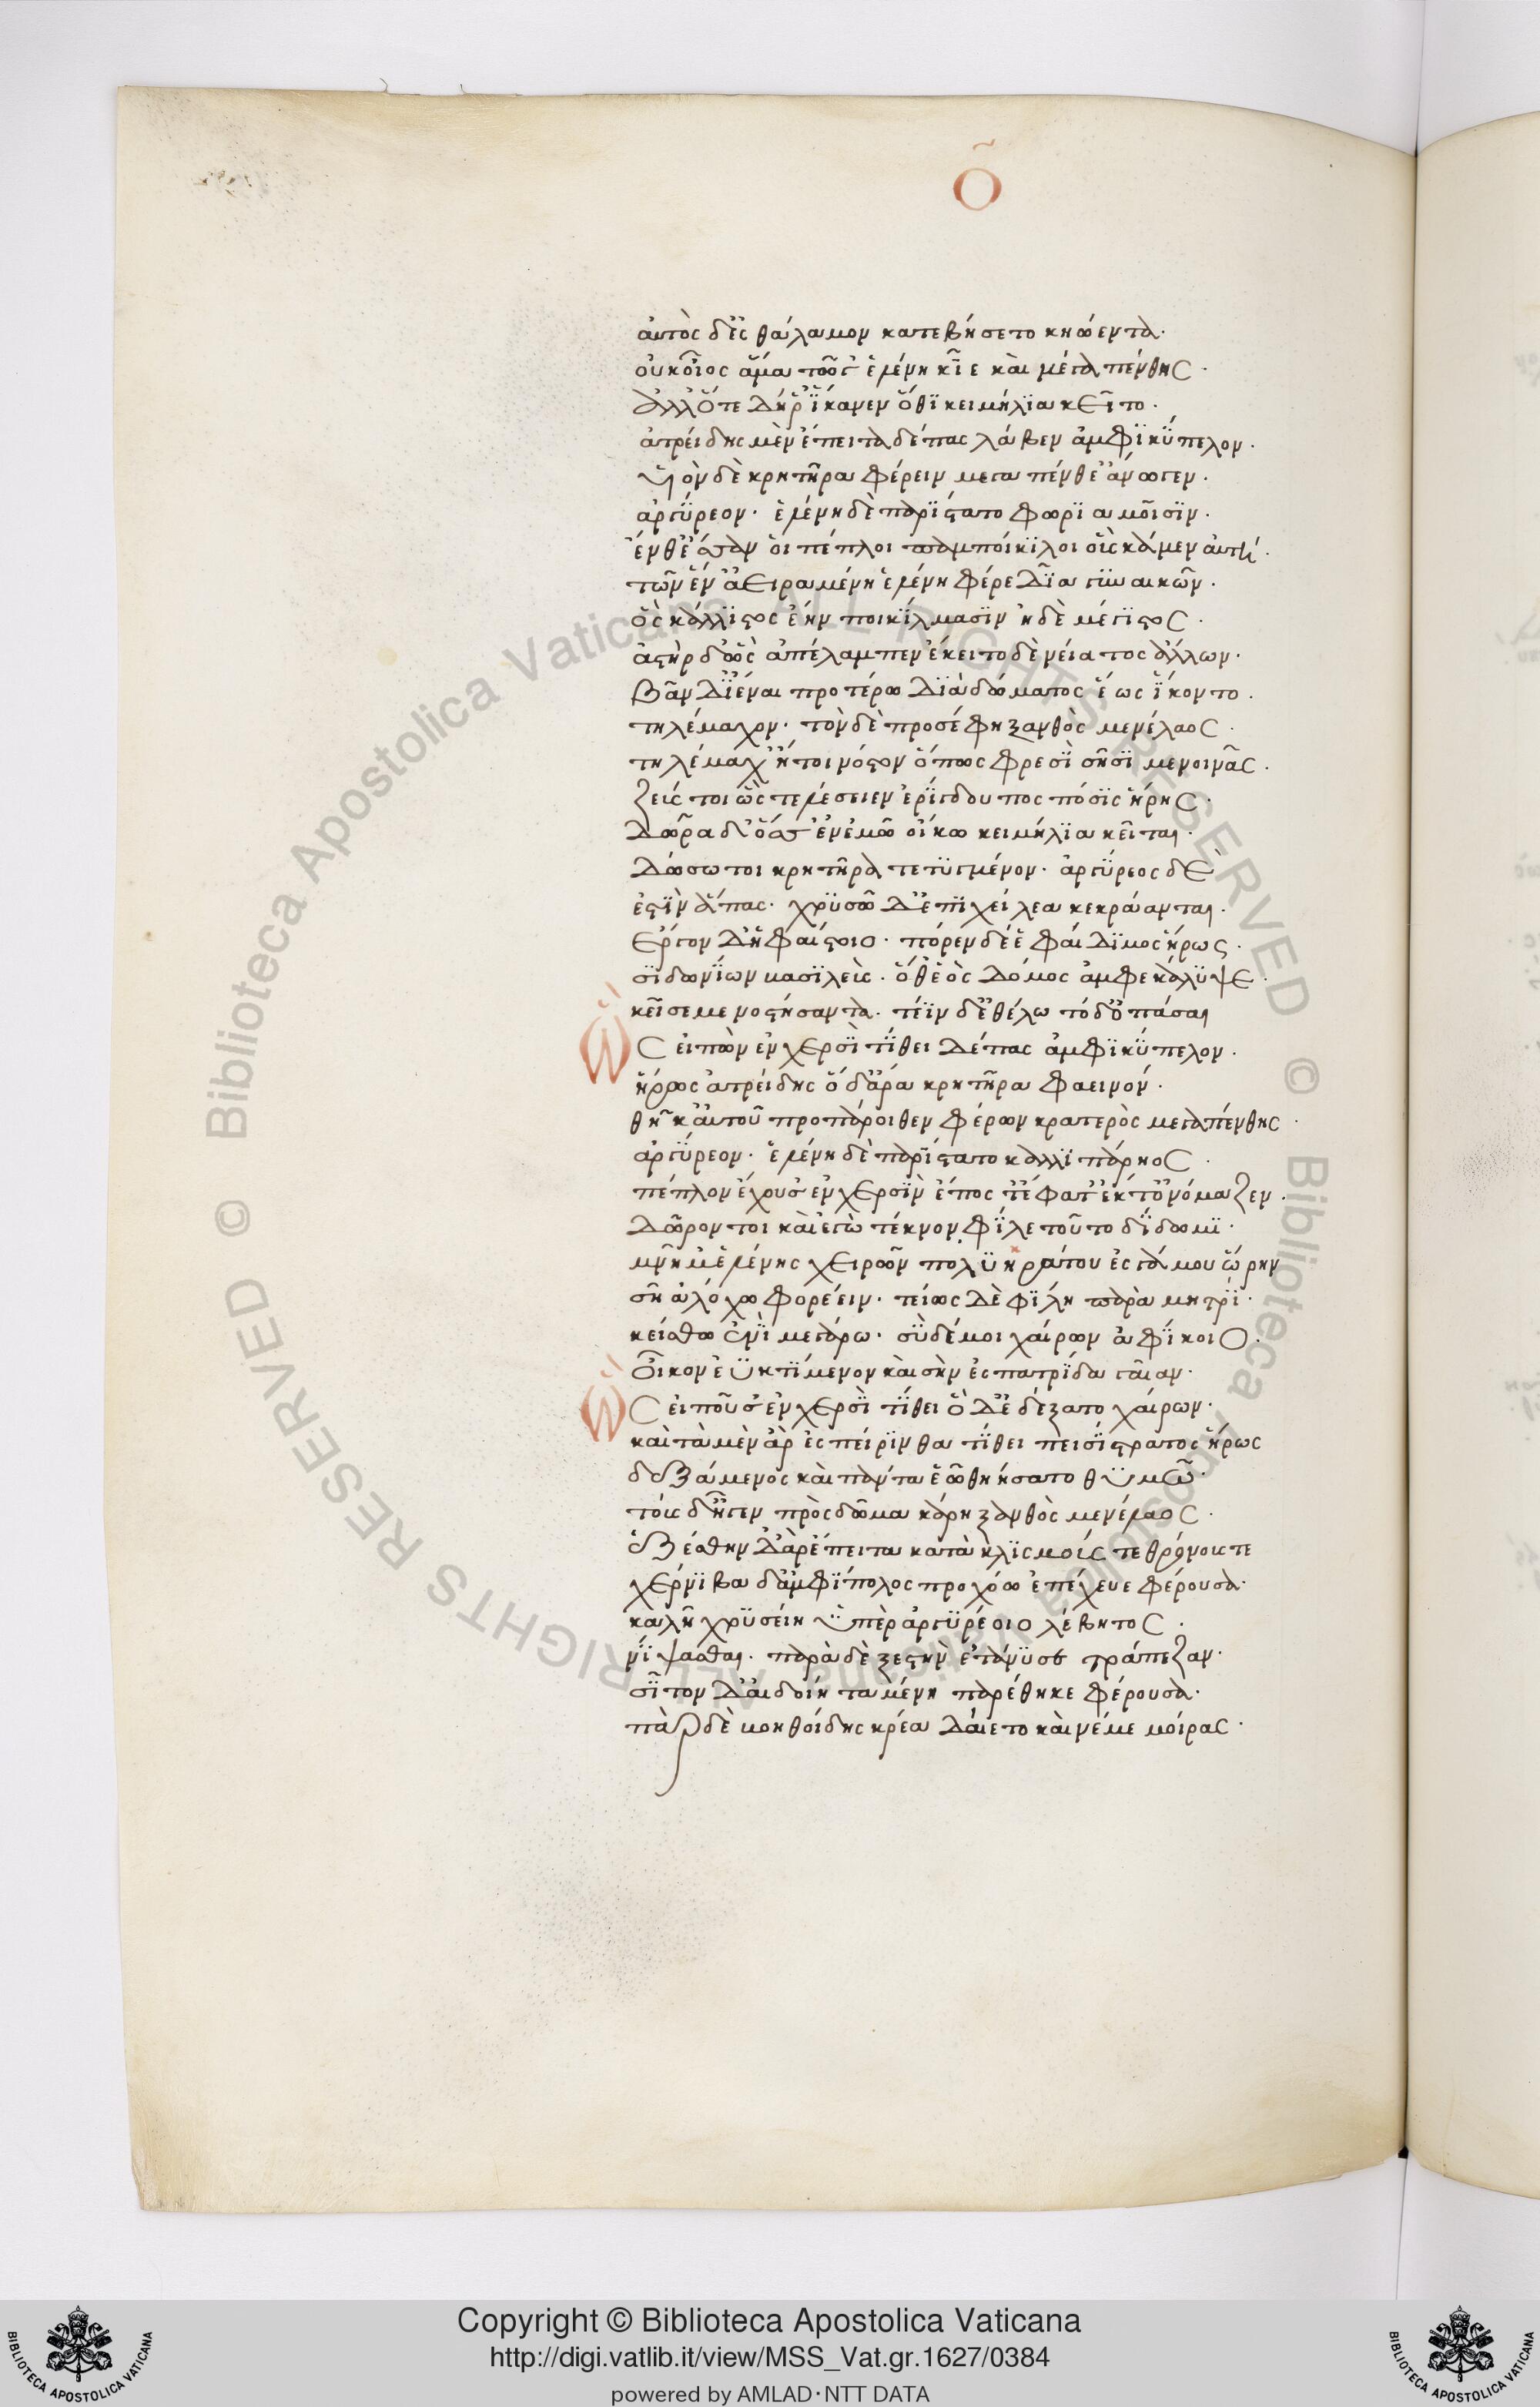 Ο
αὐτὸς δ' ἐς θάλαμον κατεβήσετο κηώεντα·
οὐκ οἶος ἅμα τῶγ' ἑλένη κῖε καὶ μεγαπένθης·
ἀλλ' ὅτε δή ῥ' ἵκανεν ὅθϊ κειμήλϊα κεῖτο·
ἀτρείδης μὲν ἔπειτα δέπας λάβεν ἀμφϊκύπελον·
ὑϊὸν δὲ κρητῆρα φέρειν μεγαπένθε' ἄνωγεν·
ἀργύρεον· ἑλένη δὲ παρΐστατο φωρϊαμοῖσϊν·
ἔνθ' ἔσαν οἱ πέπλοι παμποίκϊλοι οἷς κάμεν αὐτή·
τῶν ἕν' ἀειραμένη ἑλένη φέρε δῖα γϋναικῶν·
ὃς κάλλϊστος ἔην ποικΐλμασϊν ἠδὲ μέγϊστος·
ἀστὴρ δ' ὣς ἀπέλαμπεν ἔκειτο δὲ νείατος ἄλλων·
βᾶν δ' ἰέναι προτέρω δϊὰ δώματος ἕως ἵκοντο·
τηλέμαχον· τὸν δὲ προσέφη ξανθὸς μενέλαος·
τηλέμαχ' ἤτοι νόστον ὅπως φρεσῒ σῆσϊ μενοινᾶς·
ζεύς τοι ὣς τελέσειεν ἐρίγδουπος πόσϊς ἥρης·
δῶρα δ' ὅσσ' ἐν ἐμῶ οἴκω κειμήλϊα κεῖται·
δώσω τοι κρητῆρα τετϋγμένον· ἀργύρεος δὲ
ἐστῒν ἅπας· χρϋσῶ δ' ἐπῒ χείλεα κεκράανται·
ἔργον δ' ἡφαίστοιο· πόρεν δέ ἑ φαίδϊμος ἥρως·
σϊδωνΐων βασϊλεὺς· ὅθ' ἑὸς δόμος ἀμφεκάλϋψε·
κεῖσέ με νοστήσαντα· τεΐν δ' ἐθέλω τόδ' ὀπάσαι
Ὣς εἰπὼν ἐν χερσῒ τΐθει δέπας ἀμφϊκύπελον·
ἥρως ἀτρείδης ὁ δ' ἄρα κρητῆρα φαεινόν·
θῆκ' αὐτοῦ προπάροιθεν φέρων κρατερὸς μεγαπένθης·
ἀργύρεον· ἑλένη δὲ παρΐστατο καλλϊπάρηος·
πέπλον ἔχουσ' ἐν χερσῒν ἔπος τ' ἔφατ' ἔκ τ' ὀνόμαζεν·
δῶρον τοι καὶ ἐγὼ τέκνον φΐλε τοῦτο δΐδωμϊ·
μνῆμ' ἑλένης χειρῶν πολϋηράτου ἐς γάμου ὥρην
σῆ ἀλόχω φορέειν· τείως δὲ φΐλη παρὰ μητρΐ·
κείσθω ἐνῒ μεγάρω· σὺ δέ μοι χαίρων ἀφΐκοιο·
οἶκον ἐϋκτΐμενον καὶ σὴν ἐς πατρΐδα γαῖαν·
Ὣς εἰποῦσ' ἐν χερσῒ τΐθει ὃ δὲ δέξατο χαίρων·
καὶ τὰ μὲν ἂρ ἐς πείρϊνθα τΐθει πεισΐστρατος ἥρως
δεξάμενος καὶ πάντα ἑῶ θηήσατο θϋμῶ·
τοὺς δ' ἦγεν πρὸς δῶμα κάρη ξανθὸς μενέλαος·
ἑξέσθην δ' ἂρ ἔπειτα κατὰ κλϊσμούς τε θρόνους τε
χέρνϊβα δ' ἀμφΐπολος προχόω ἐπέχευε φέρουσα·
καλῆ χρϋσείη ὑπὲρ ἀργϋρέοιο λέβητος·
νΐψασθαι· παρὰ δὲ ξεστὴν ἐτάνϋσε τράπεζαν·
σῖτον δ' αἰδοίη ταμΐη παρέθηκε φέρουσα·
πὰρ δὲ βοηθοίδης κρέα δαίετο καὶ νέμε μοίρας·
Copyright © Biblioteca Apostolica Vaticana
http://digi.vatlib.it/view/MSS_Vat.gr.1627/0384
powered by AMLAD·NTT DATA